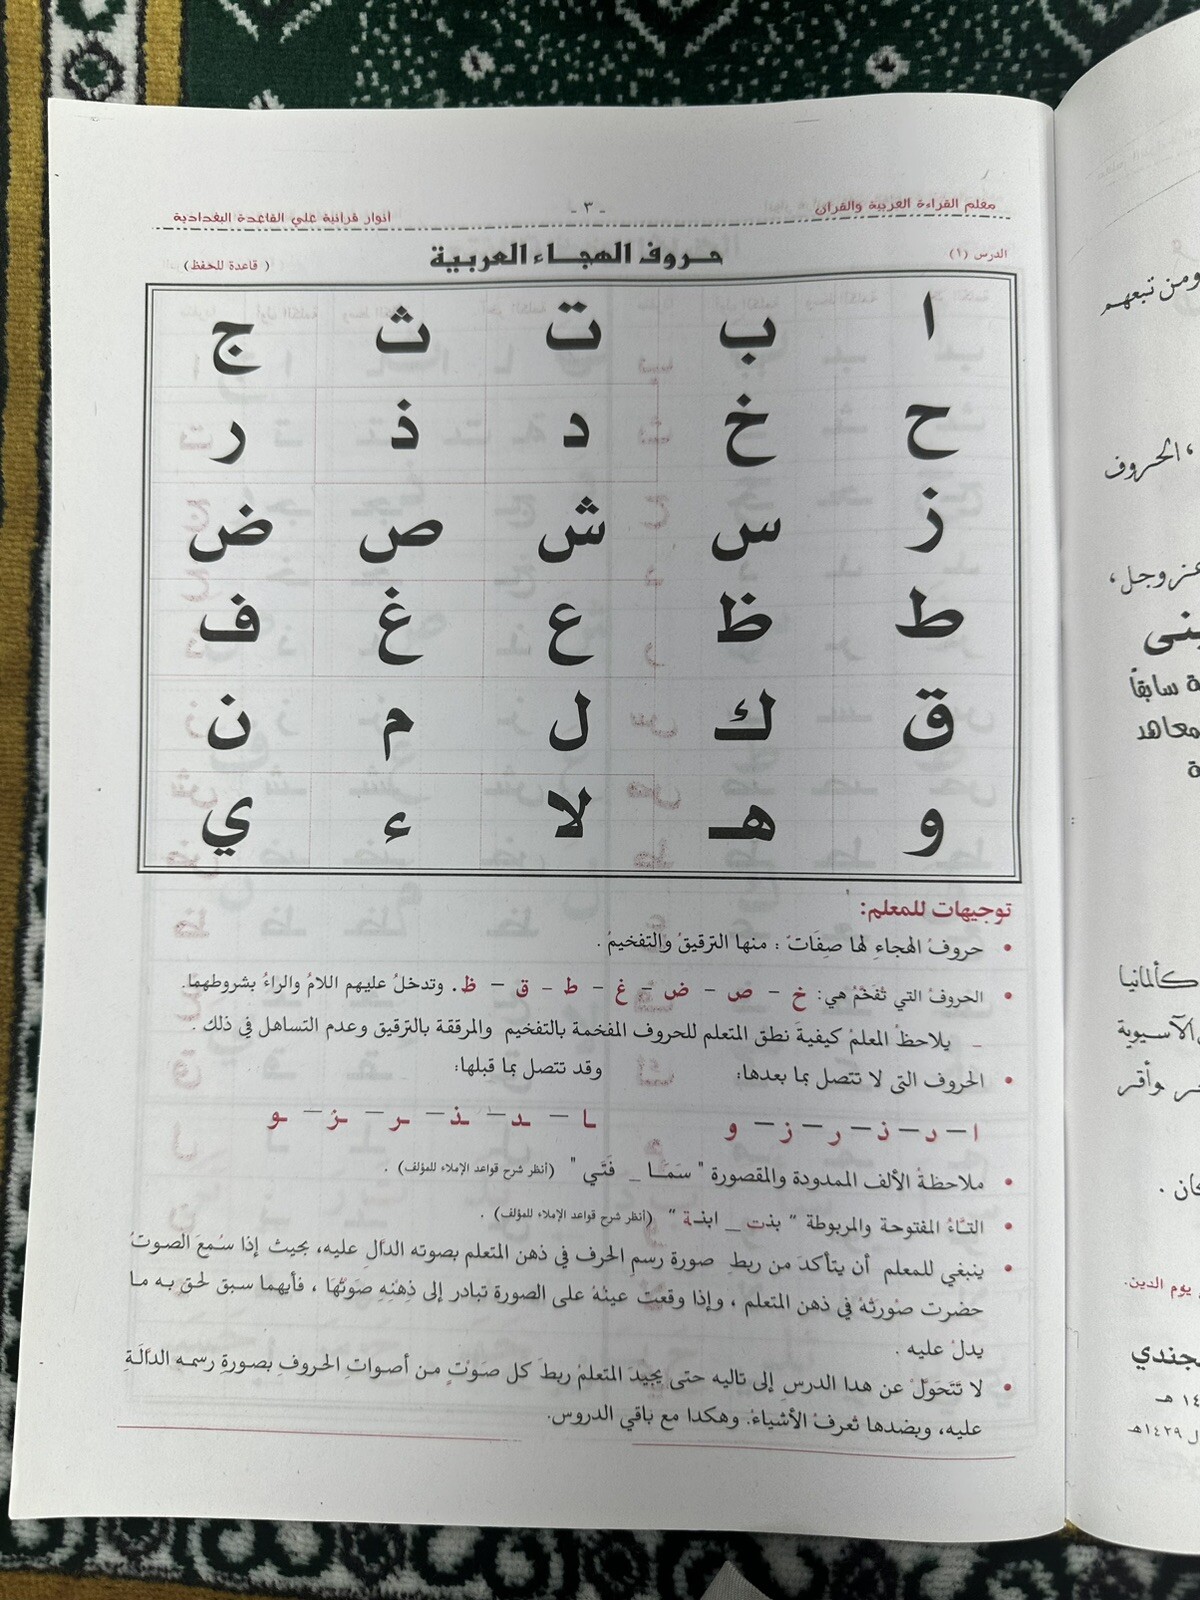 معلم القراءة العربية والقرآن
- ٣ -
أنوار قرآنية علي القاعدة البغدادية
الدرس (١)
حروف الهجاء العربية
( قاعدة للحفظ )
ا ب ت ث ج
ح خ د ذ ر
ز س ش ص ض
ط ظ ع غ ف
ق ك ل م ن
و هـ لا ء ي
توجيهات للمعلم:
• حروفُ الهجاءِ لها صِفَاتٌ : منها الترقيقُ والتفخيمُ .
• الحروفُ التي تُفَخَّمُ هي: خ – ص – ض – غ – ط – ق – ظ . وتدخلُ عليهم اللامُ والراءُ بشروطهما.
_ يلاحظُ المعلمُ كيفيةَ نطق المتعلم للحروف المفخمة بالتفخيم والمرققة بالترقيق وعدم التساهل في ذلك .
• الحروف التى لا تتصل بما بعدها: وقد تتصل بما قبلها:
ا – د – ذ – ر – ز – و ـا – ـد – ـذ – ـر – ـز – ـو
• ملاحظةُ الألف الممدودة والمقصورة " سَمَـا _ فَتَى " (أنظر شرح قواعد الإملاء للمؤلف) .
• التاءُ المفتوحة والمربوطة " بنت _ ابنة " (أنظر شرح قواعد الإملاء للمؤلف) .
• ينبغي للمعلم أن يتأكدَ من ربط صورة رسمِ الحرف في ذهن المتعلم بصوته الدالِ عليه، بحيث إذا سُمعَ الصوتُ
حضرت صُورتُهُ في ذهن المتعلم ، وإذا وقعت عينُهُ على الصورة تبادر إلى ذِهنِهِ صَوتُهَا ، فأيهما سبق لحق به ما
يدلُ عليه .
• لا تَتَحَوَّلْ عن هذا الدرس إلى تاليه حتى يجيدَ المتعلمُ ربطَ كل صَوتٍ من أصواتِ الحروفِ بصورةِ رسمه الدَّالَةِ
عليه، وبضدها تُعرفُ الأشياءُ. وهكذا مع باقي الدروس.
ومن تبعهم
، الحروف
عز وجل،
ة سابقاً
معاهد
ة
كألمانيا
الآسيوية
وأقر
يوم الدين.